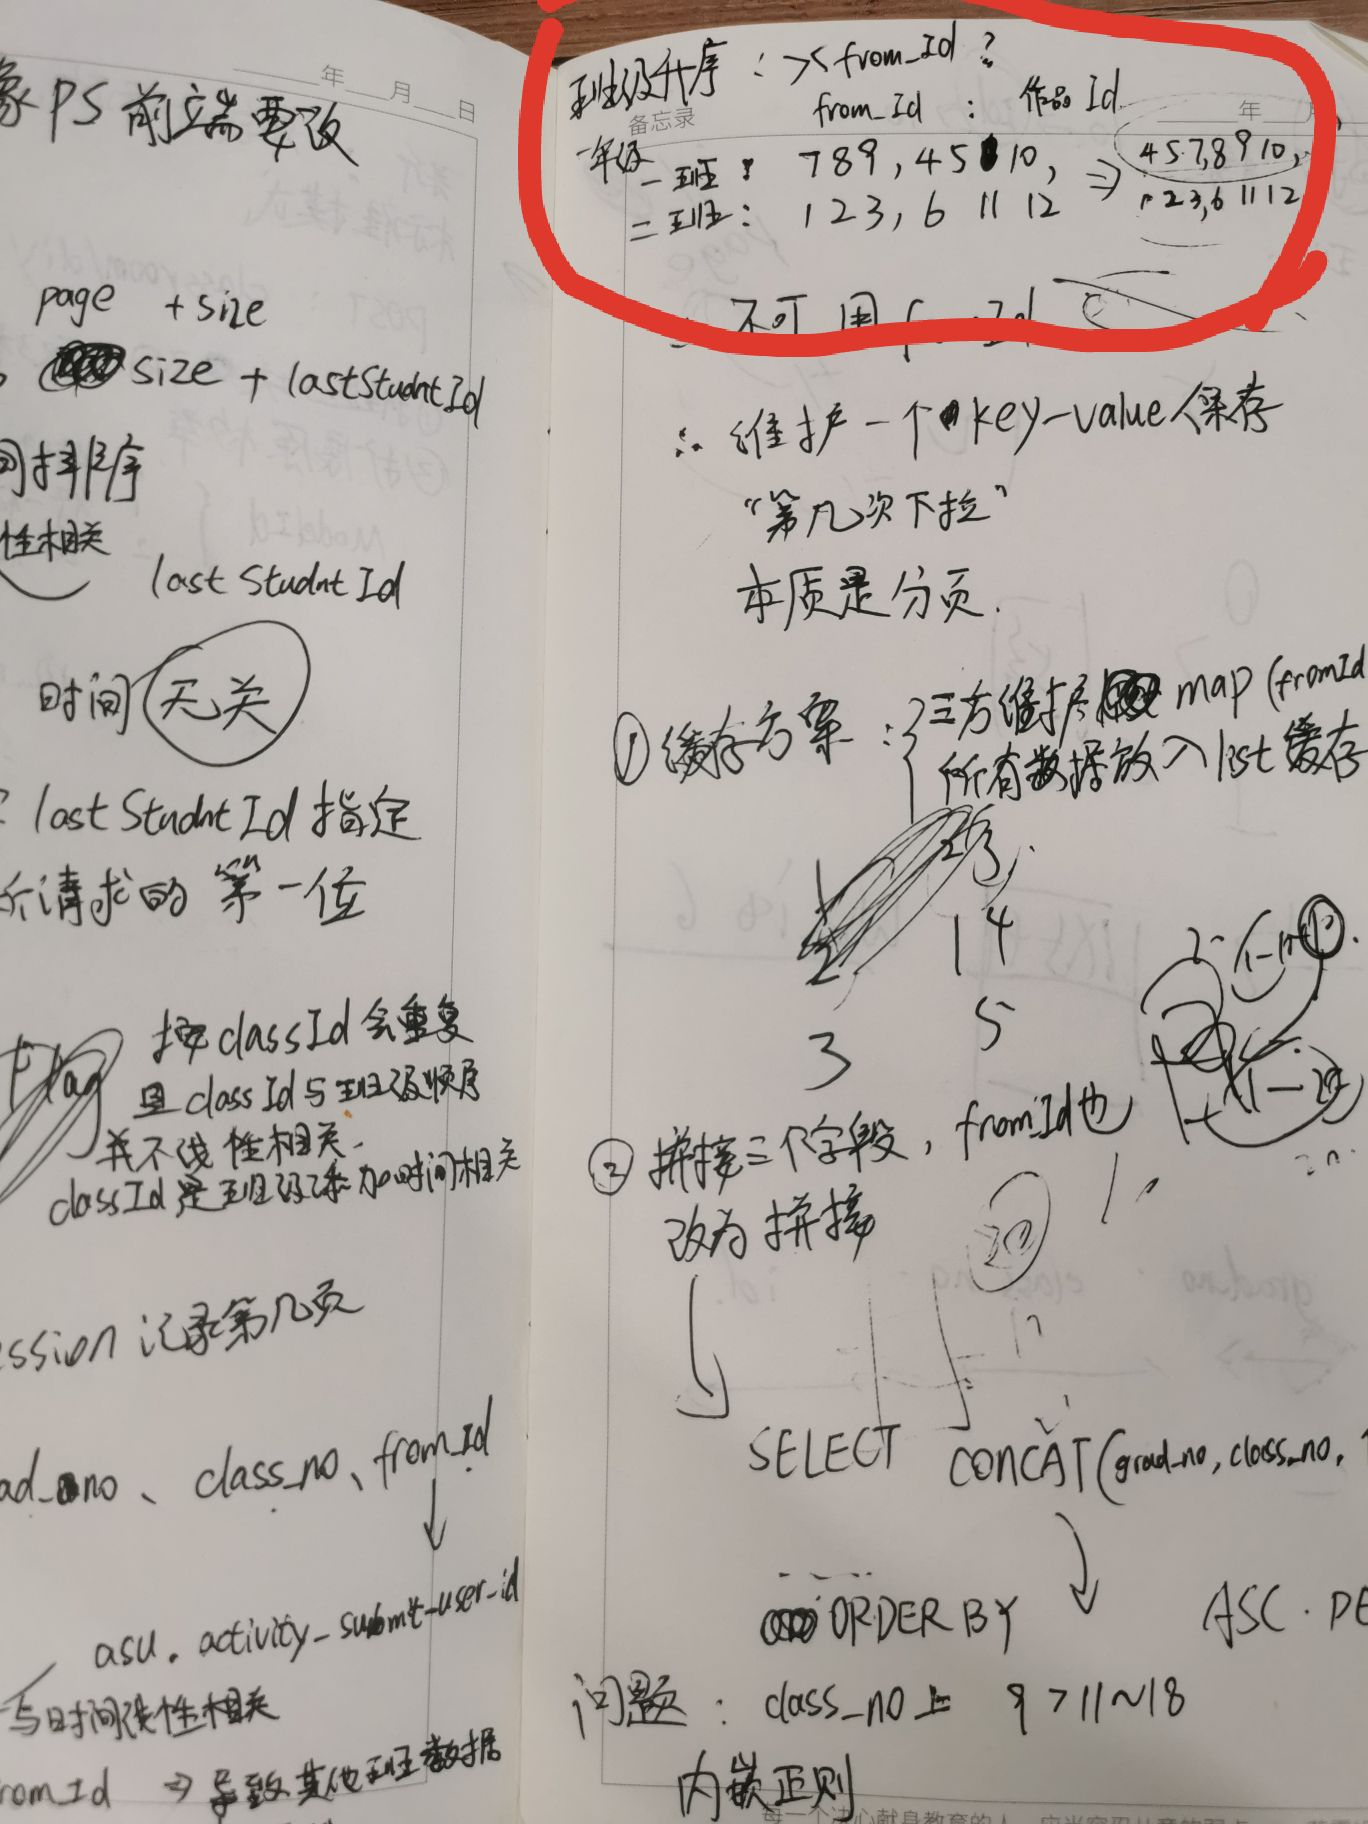 象PS 前端要改
年 月 日
page + size
size + lastStudntId
间排序
性相关
last StudntId
时间 无关
lastStudntId 指定
所请求的 "第一位
flag
按 classId 会重复
且 classId 与 班级顺序
并不线性相关.
classId是班级添加时间相关
ession 记录第几页
ad_no、class_no、from_Id
asu. activity_submit_user_id
与时间线性相关
romId ⇒ 导致其他班数据
班级升序 : >< from_Id ?
from_Id : 作品 Id
备忘录 年 月
一年级
一班: 7 8 9 , 4 5 10, ⇒ 4 5 7,8 9 10,
二班: 1 2 3, 6 11 12 1 2 3,6 11 12
不可用
∴ 维护一个 key-value 保存
"第几次下拉"
本质是分页.
① 缓存方案 : { 三方维护 map (fromId
所有数据放入 list 缓存
14
3
5
② 拼接三个字段, from_Id也
改为拼接
20
SELECT CONCAT(grad_no, class_no,
ORDER BY ASC . DE
问题: class_no 上 9 > 11~18
内嵌正则